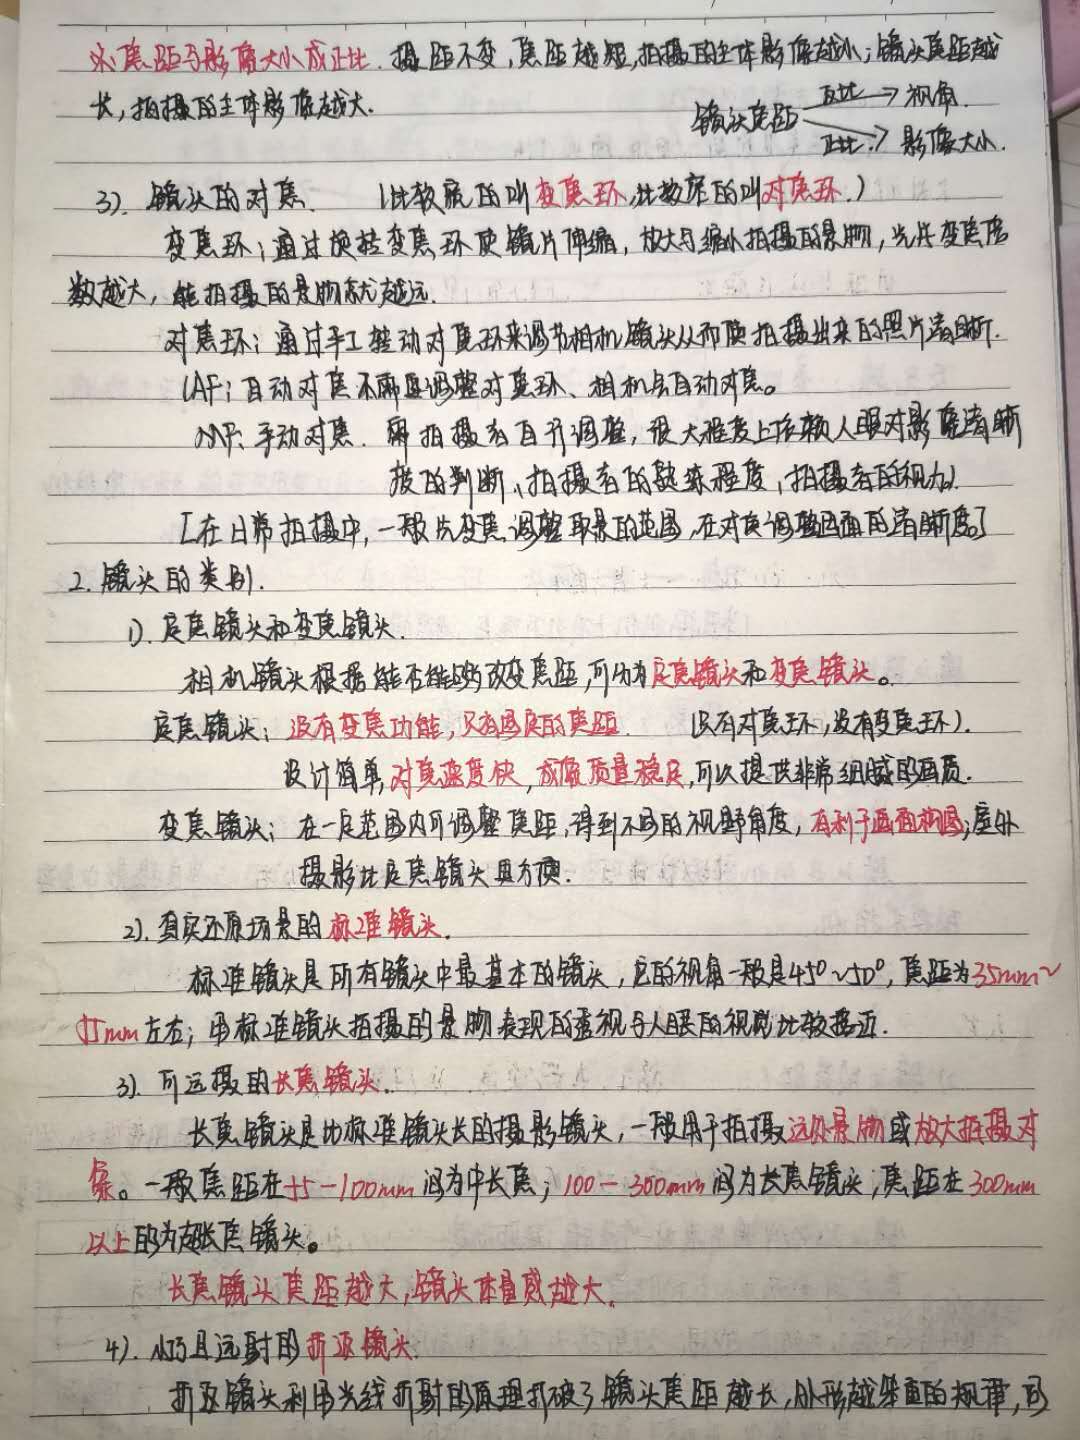 ※焦距与影像大小成正比. 摄距不变,焦距越短,拍摄的主体影像越小;镜头焦距越
长,拍摄的主体影像越大.
镜头焦距 反比→视角.
正比→影像大小.
3). 镜头的对焦. (比较宽的叫变焦环,比较窄的叫对焦环.)
变焦环:通过旋转变焦环使镜片伸缩,放大与缩小拍摄的景物,光学变焦倍
数越大,能拍摄的景物就越远.
对焦环:通过手工转动对焦环来调节相机镜头从而使拍摄出来的照片清晰.
(AF:自动对焦不需要调整对焦环、相机会自动对焦。
MF:手动对焦. 需拍摄者自行调整,很大程度上依赖人眼对影像清晰
度的判断、拍摄者的熟练程度,拍摄者的视力).
[在日常拍摄中,一般先变焦调整取景的范围,在对焦调整画面的清晰度。]
2. 镜头的类别.
1). 定焦镜头和变焦镜头.
相机镜头根据能否能够改变焦距,可分为定焦镜头和变焦镜头。
定焦镜头:没有变焦功能,只有固定的焦距. (只有对焦环,没有变焦环).
设计简单,对焦速度快,成像质量稳定,可以提供非常细腻的画质.
变焦镜头:在一定范围内可调整焦距,得到不同的视野角度,有利于画面构图;室外
摄影比定焦镜头更方便.
2). 真实还原场景的标准镜头.
标准镜头是所有镜头中最基本的镜头,它的视角一般是45°~50°,焦距为35mm~
55mm左右;用标准镜头拍摄的景物表现的透视与人眼的视觉比较接近.
3). 可远摄的长焦镜头.
长焦镜头是比标准镜头长的摄影镜头,一般用于拍摄远处景物或放大拍摄对
象。一般焦距在55-100mm间为中长焦;100-300mm间为长焦镜头;焦距在300mm
以上的为超长焦镜头。
长焦镜头焦距越大,镜头体量感越大.
4). 小巧且远射的折返镜头.
折返镜头利用光线折射的原理打破了镜头焦距越长,外形越笨重的规律,可